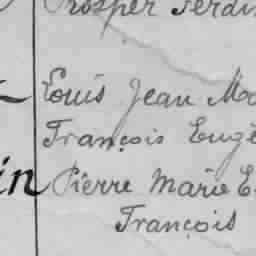 Prosper Ferdin
Louis Jean Ma
François Eugè
in Pierre Marie E
François